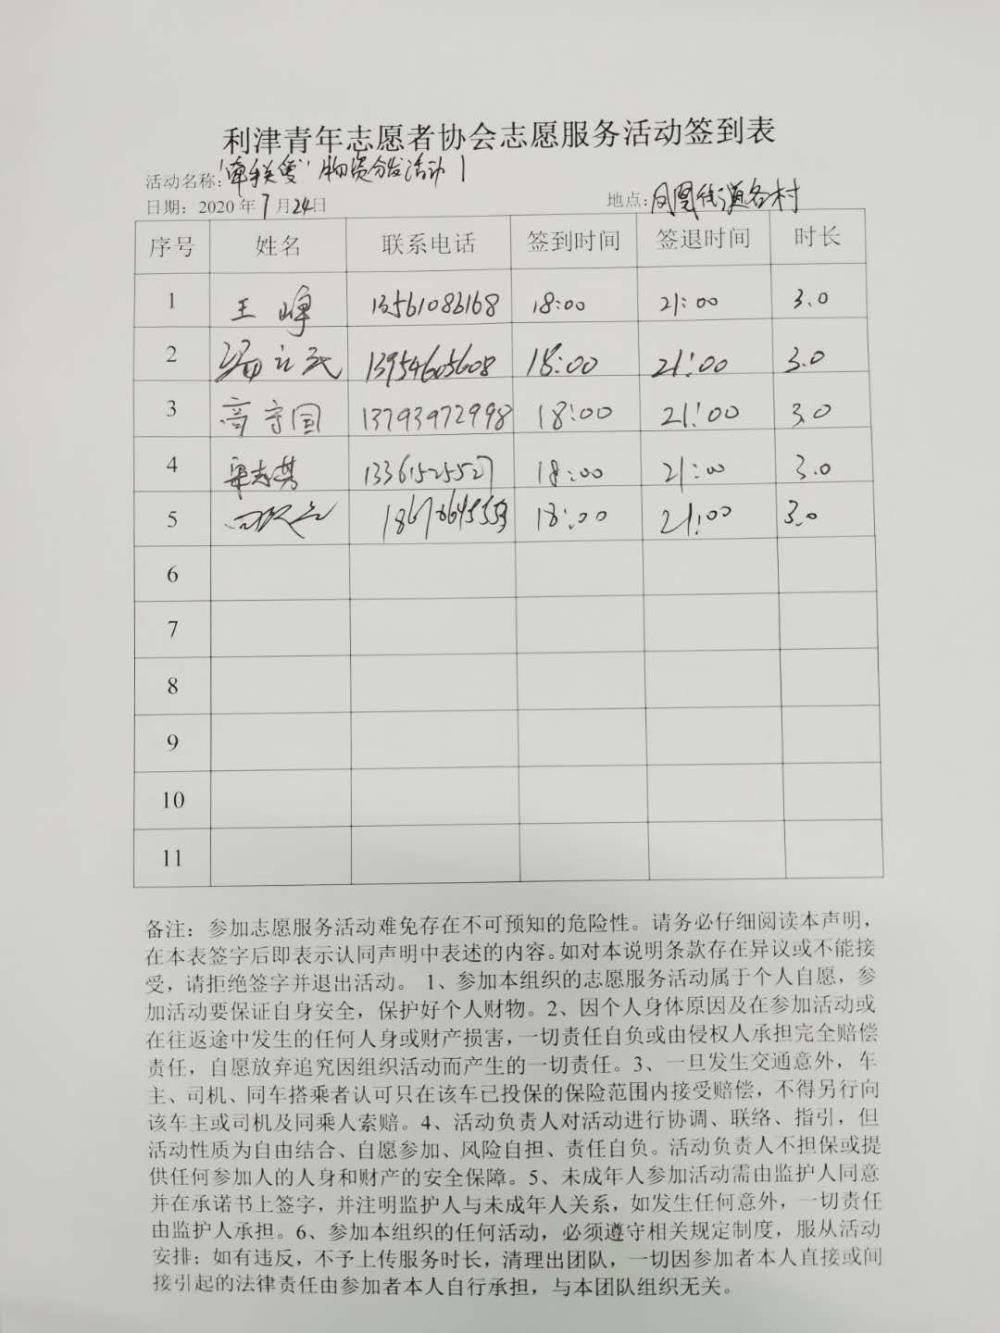 利津青年志愿者协会志愿服务活动签到表
活动名称：“牵手关爱”物资分发活动1
日期：2020年7月24日 地点：凤凰街道各村
序号 姓名 联系电话 签到时间 签退时间 时长
1 王峰 13561086168 18:00 21:00 3.0
2 13954605608 18:00 21:00 3.0
3 高守国 13793972998 18:00 21:00 3.0
4 13361525527 18:00 21:00 3.0
5 18:00 21:00 3.0
6
7
8
9
10
11
备注：参加志愿服务活动难免存在不可预知的危险性。请务必仔细阅读本声明，
在本表签字后即表示认同声明中表述的内容。如对本说明条款存在异议或不能接
受，请拒绝签字并退出活动。 1、参加本组织的志愿服务活动属于个人自愿，参
加活动要保证自身安全，保护好个人财物。2、因个人身体原因及在参加活动或
在往返途中发生的任何人身或财产损害，一切责任自负或由侵权人承担完全赔偿
责任，自愿放弃追究因组织活动而产生的一切责任。3、一旦发生交通意外，车
主、司机、同车搭乘者认可只在该车已投保的保险范围内接受赔偿，不得另行向
该车主或司机及同乘人索赔。4、活动负责人对活动进行协调、联络、指引，但
活动性质为自由结合、自愿参加、风险自担、责任自负。活动负责人不担保或提
供任何参加人的人身和财产的安全保障。5、未成年人参加活动需由监护人同意
并在承诺书上签字，并注明监护人与未成年人关系，如发生任何意外，一切责任
由监护人承担。6、参加本组织的任何活动，必须遵守相关规定制度，服从活动
安排；如有违反，不予上传服务时长，清理出团队，一切因参加者本人直接或间
接引起的法律责任由参加者本人自行承担，与本团队组织无关。